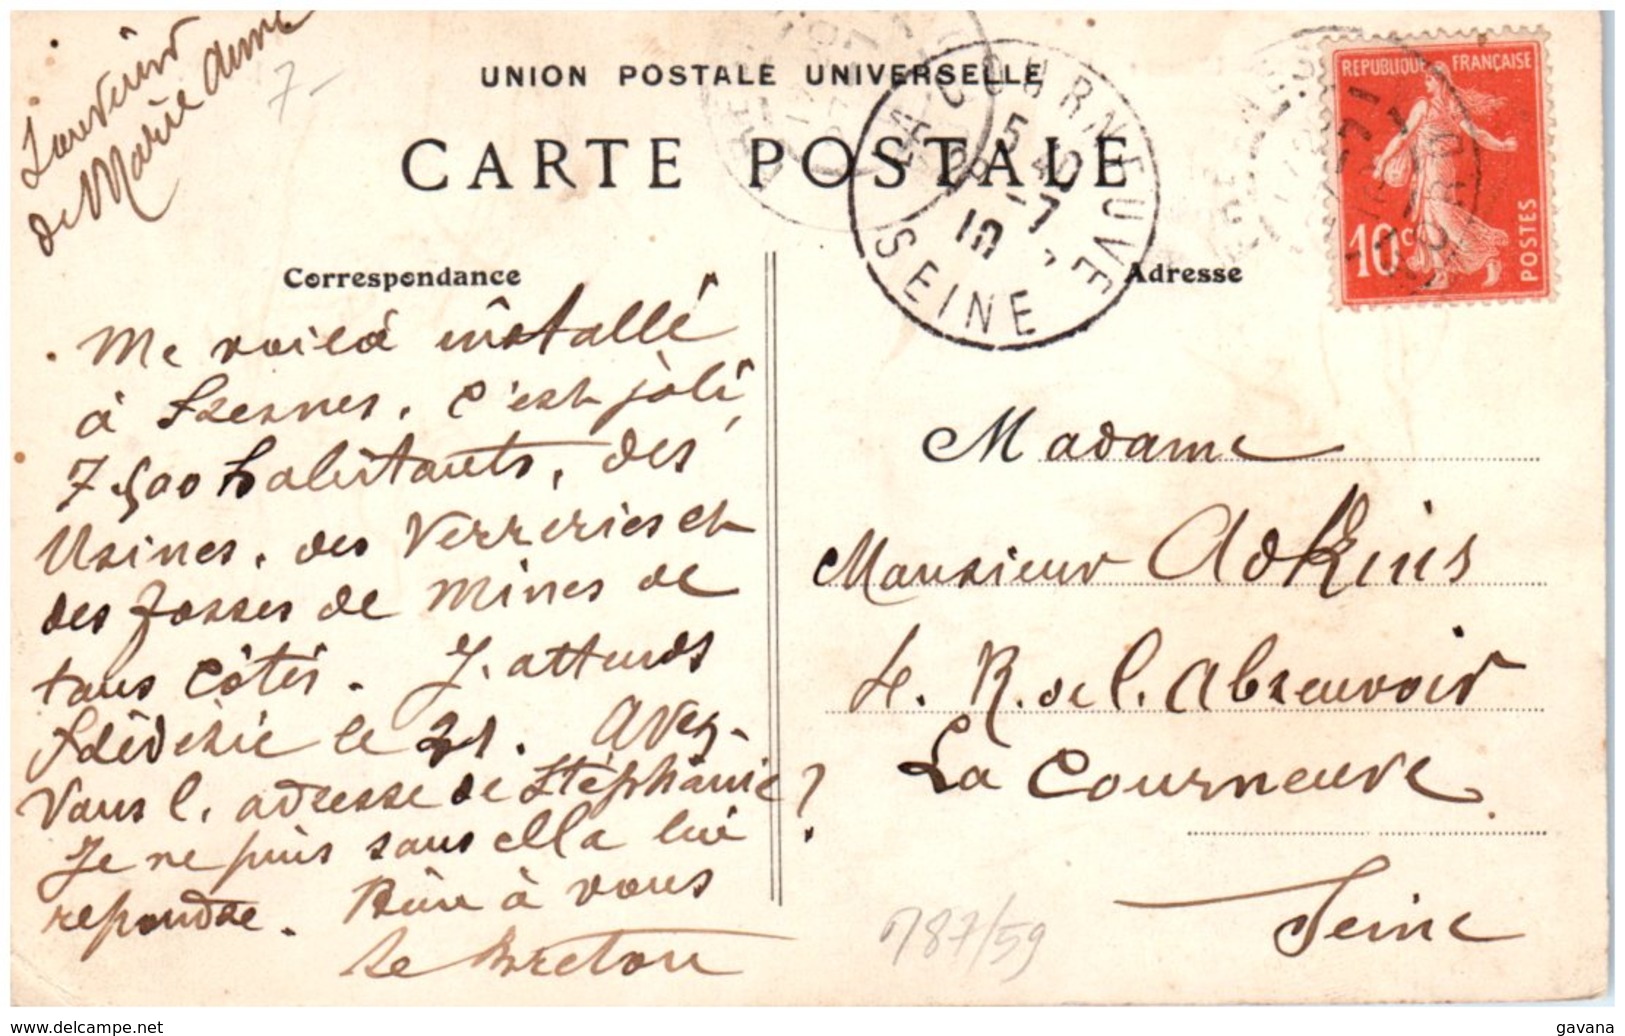 Souvenir
de Marie Anne
7-
UNION POSTALE UNIVERSELLE
CARTE POSTALE
LA COURNEUVE
5 40
28 -7
10
SEINE
REPUBLIQUE FRANÇAISE
10c
POSTES
Correspondance
Adresse
Me voilà installé
à Fresnes. C'est joli,
7500 habitants, des
Usines, des Verreries et
des fosses de Mines de
tous côtés. J'attends
Frédéric le 21. Avez-
Vous l'adresse de Stéphanie ?
Je ne puis sans ella lui
repondre. Bien à vous
Le Breton
Madame
Monsieur Adkins
4. R. de l'Abreuvoir
La Courneuve
Seine
787/59
gavana
www.delcampe.net